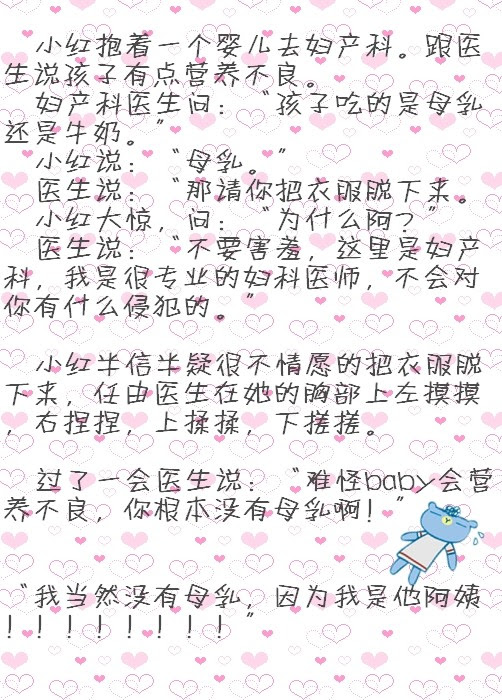 小红抱着一个婴儿去妇产科。跟医
生说孩子有点营养不良。
妇产科医生问：“孩子吃的是母乳
还是牛奶。”
小红说：“母乳。”
医生说：“那请你把衣服脱下来。
小红大惊，问：“为什么阿？”
医生说：“不要害羞，这里是妇产
科，我是很专业的妇科医师，不会对
你有什么侵犯的。”
小红半信半疑很不情愿的把衣服脱
下来，任由医生在她的胸部上左摸摸
，右捏捏，上揉揉，下搓搓。
过了一会医生说：“难怪baby会营
养不良，你根本没有母乳啊！”
“我当然没有母乳，因为我是他阿姨
！！！！！！！！”